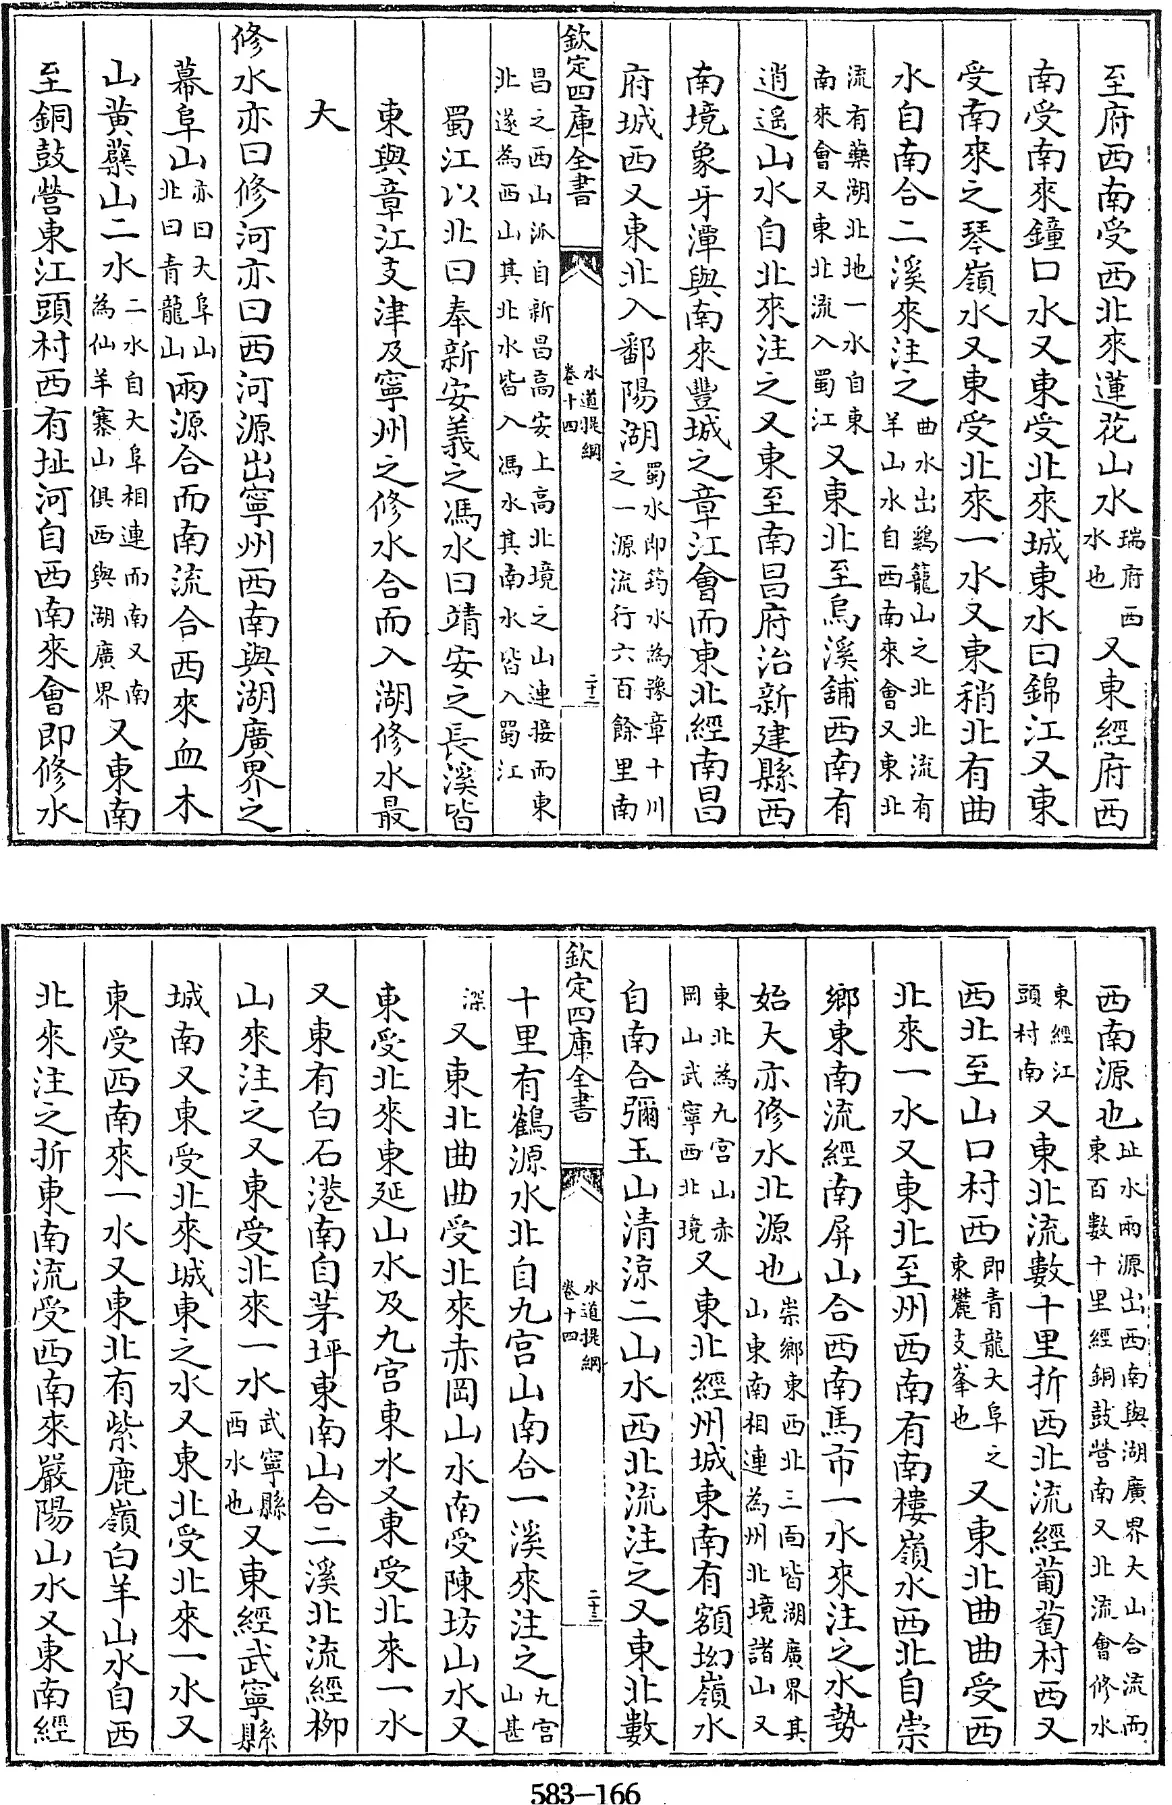 至府西南受西北來蓮花山水瑞府西水也又東經府西
南受南來鐘口水又東受北來城東水曰錦江又東
受南來之琴嶺水又東受北來一水又東稍北有曲
水自南合二溪來注之曲水出鷄籠山之北北流有羊山水自西南來會又東北
流有藥湖北地一水自東南來會又東北流入蜀江又東北至烏溪舖西南有
逍遥山水自北來注之又東至南昌府治新建縣西
南境象牙潭與南來豐城之章江會而東北經南昌
府城西又東北入鄱陽湖蜀水即筠水為豫章十川之一源流行六百餘里南
欽定四庫全書
水道提綱
卷十四
二十二
昌之西山派自新昌高安上高北境之山連接而東北遂為西山其北水皆入馮水其南水皆入蜀江
蜀江以北曰奉新安義之馮水曰靖安之長溪皆
東與章江支津及寧州之修水合而入湖修水最
大
修水亦曰修河亦曰西河源出寧州西南與湖廣界之
幕阜山亦曰大阜山北曰青龍山兩源合而南流合西來血木
山黄蘗山二水二水自大阜相連而南又南為仙羊寨山俱西與湖廣界又東南
至銅鼓營東江頭村西有址河自西南來會即修水
西南源也址水兩源出西南與湖廣界大山合流而東百數十里經銅鼓營南又北流會修水
東經江頭村南又東北流數十里折西北流經葡萄村西又
西北至山口村西即青龍大阜之東麓支峯也又東北曲曲受西
北來一水又東北至州西南有南樓嶺水西北自崇
鄉東南流經南屏山合西南馬市一水來注之水勢
始大亦修水北源也崇鄉東西北三面皆湖廣界其山東南相連為州北境諸山又
東北為九宮山赤岡山武寧西北境又東北經州城東南有額坳嶺水
自南合彌玉山清涼二山水西北流注之又東北數
欽定四庫全書
水道提綱
卷十四
二十三
十里有鶴源水北自九宮山南合一溪來注之九宮山甚
深又東北曲曲受北來赤岡山水南受陳坊山水又
東受北來東延山水及九宮東水又東受北來一水
又東有白石港南自茅坪東南山合二溪北流經柳
山來注之又東受北來一水武寧縣西水也又東經武寧縣
城南又東受北來城東之水又東北受北來一水又
東受西南來一水又東北有紫鹿嶺白羊山水自西
北來注之折東南流受西南來嚴陽山水又東南經
583—166